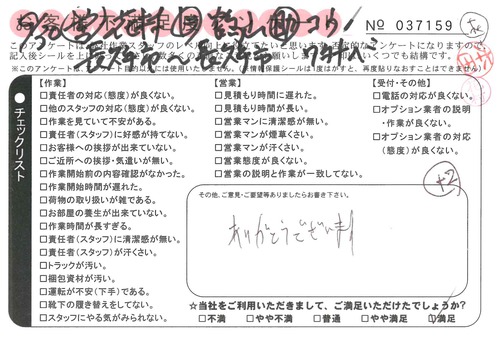 No 037159
このアンケートは
記入後シールを上
※このアンケートは、
チェックリスト
【作業】
□責任者の対応(態度)が良くない。
□他のスタッフの対応(態度)が良くない。
□作業を見ていて不安がある。
□責任者(スタッフ)に好感が持てない。
□お客様への挨拶が出来ていない。
□ご近所への挨拶・気遣いが無い。
□作業開始前の内容確認がなかった。
□作業開始時間が遅れた。
□荷物の取り扱いが雑である。
□お部屋の養生が出来ていない。
□作業時間が長すぎる。
□責任者(スタッフ)に清潔感が無い。
□責任者(スタッフ)が汗くさい。
□トラックが汚い。
□梱包資材が汚い。
□運転が不安(下手)である。
□靴下の履き替えをしてない。
□スタッフにやる気がみられない。
【営業】
□見積もり時間に遅れた。
□見積もり時間が長い。
□営業マンに清潔感が無い。
□営業マンが煙草くさい。
□営業マンが汗くさい。
□営業態度が良くない。
□営業の説明と作業が一致してない。
【受付・その他】
□電話の対応が良くない。
□オプション業者の説明
・作業が良くない。
□オプション業者の対応
(態度)が良くない。
+2
その他、ご意見・ご要望等ありましたらお書き下さい。
ありがとうございます
☆当社をご利用いただきまして、ご満足いただけたでしょうか?
□不満 □やや不満 □普通 □やや満足 □満足